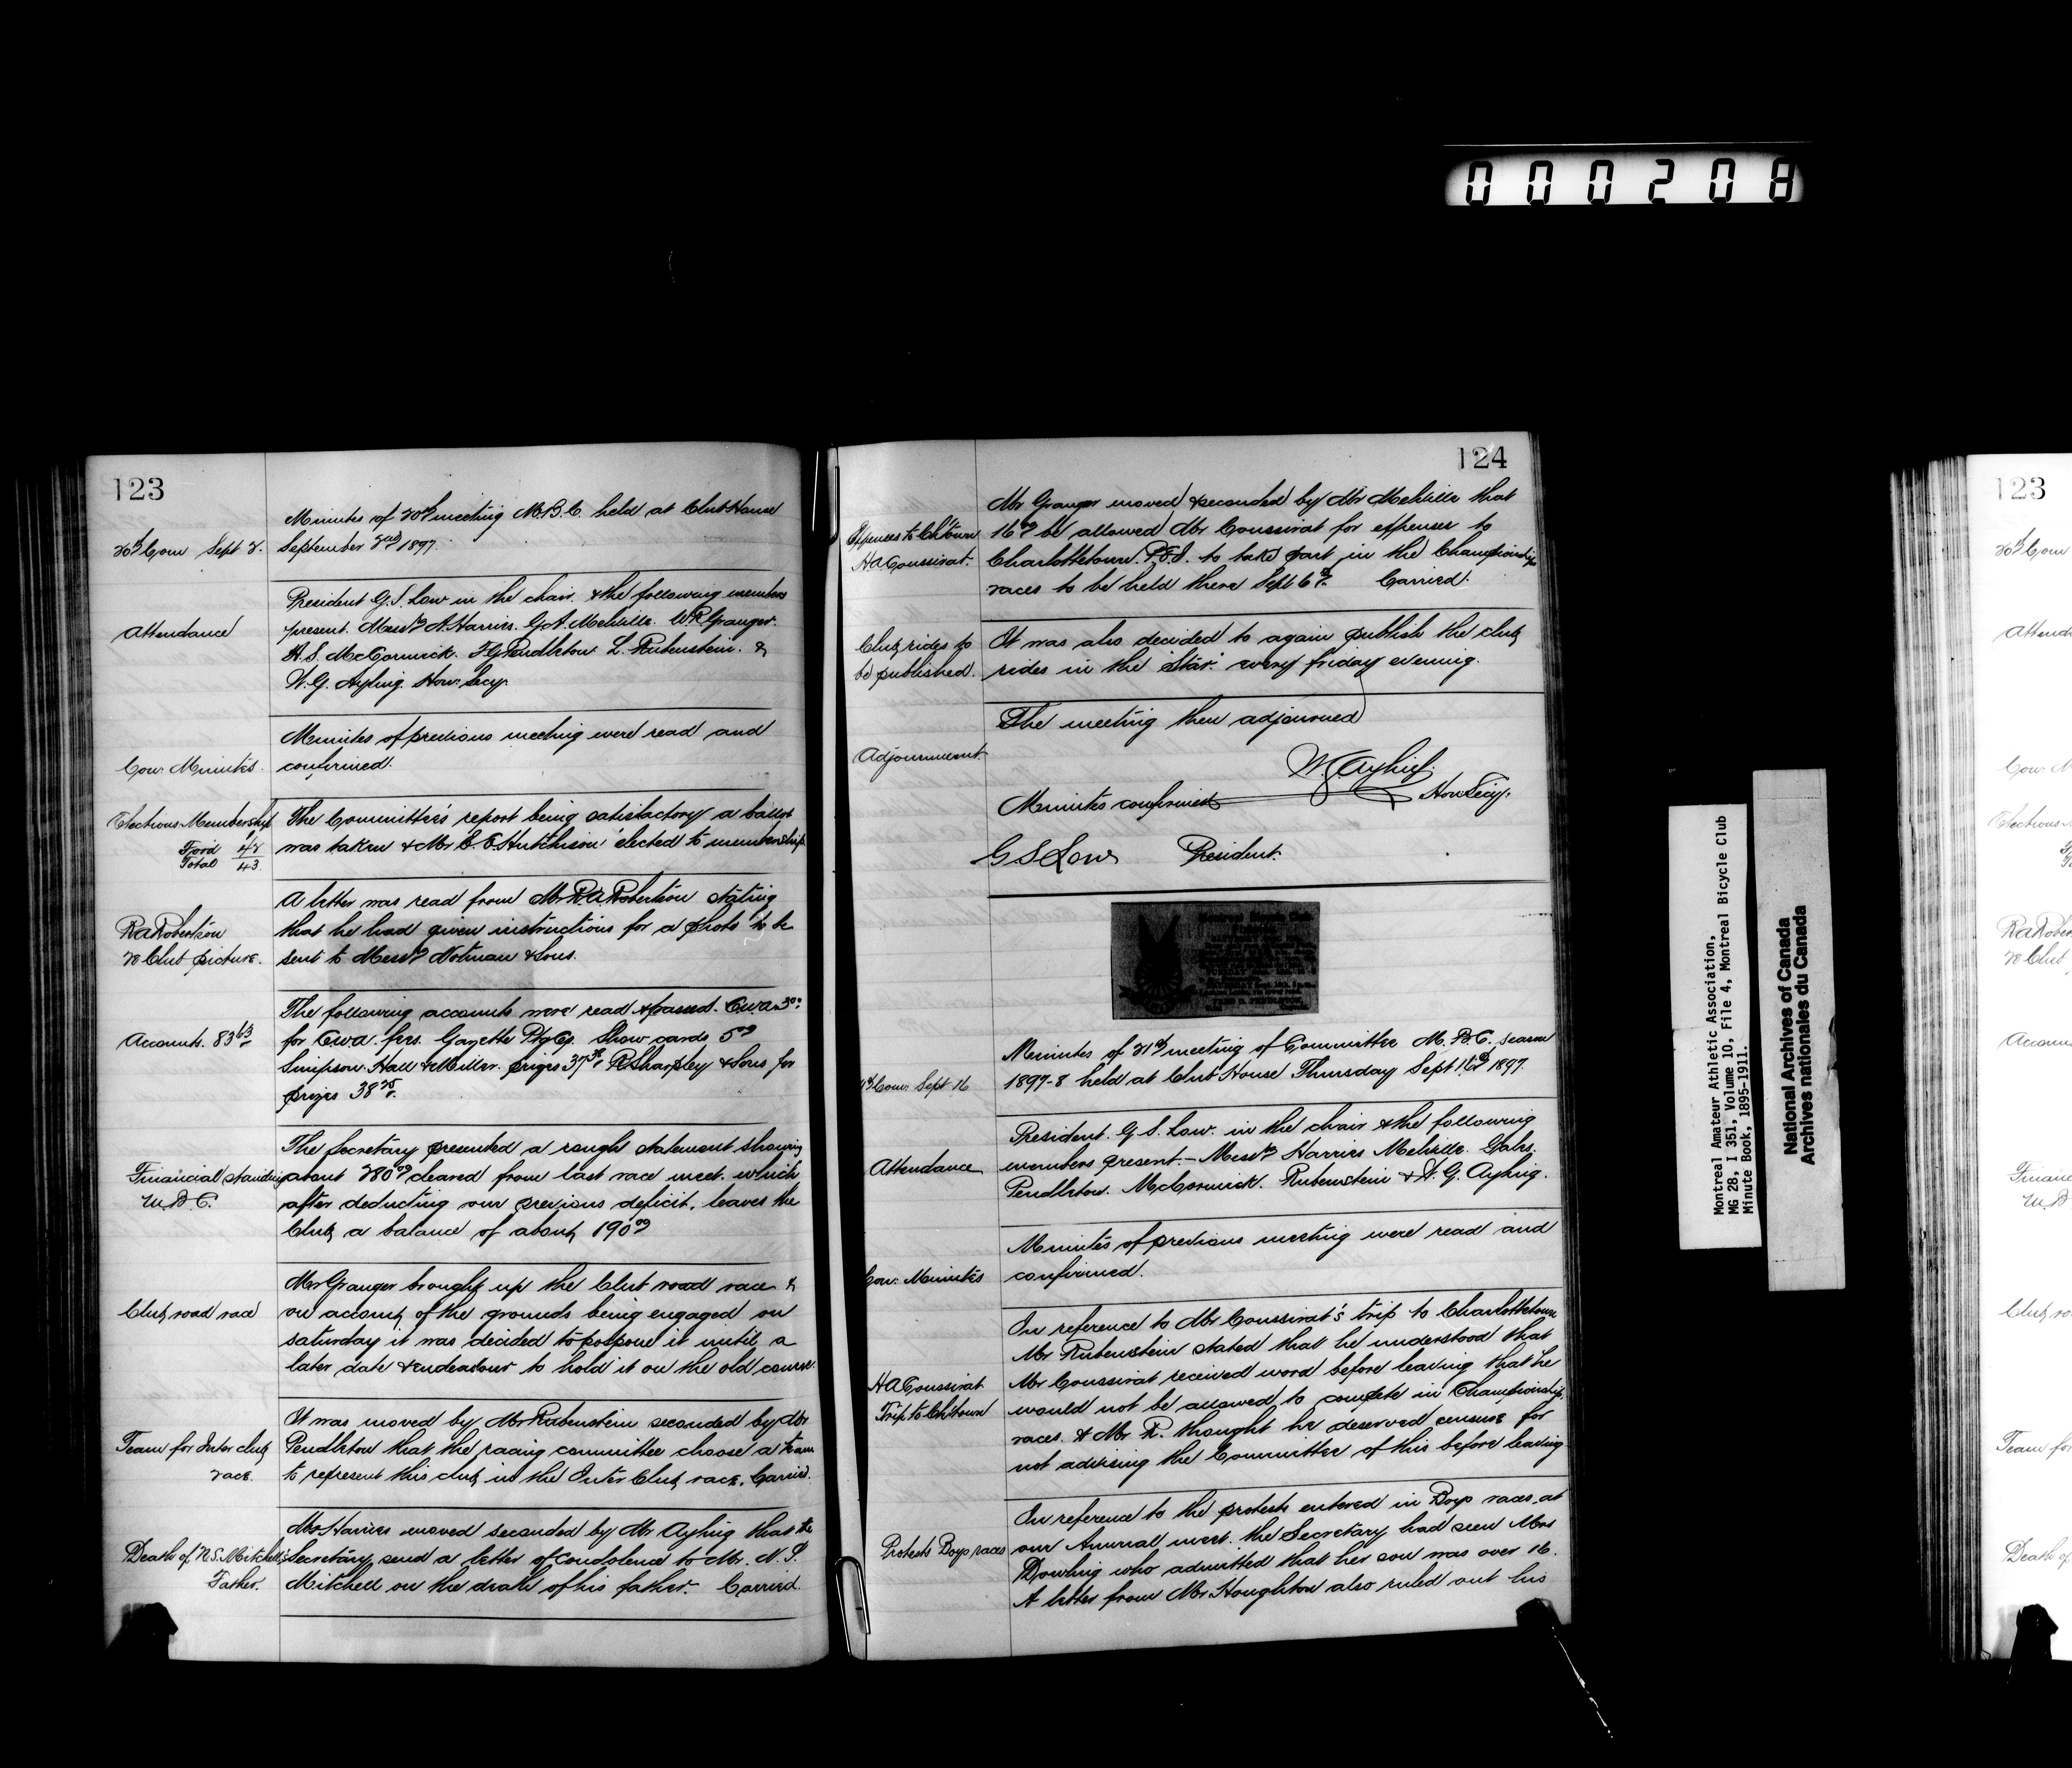 000208
123
Minutes of 20th meeting M.B.C. held at Club House
20th Com Sept 2.
September 2nd 1897.
Attendance
President G.S. Low in the chair & the following members
present. Messrs A. Harries. G.A. Melville. W.R. Granger.
H.S. McCormick. F.G. Pendleton. L. Rubenstein. &
W.G. Ayling. Hon. Secy.
Con. Minutes.
Minutes of previous meeting were read and
confirmed.
Elections Membership
Ford 42
Total 43
The Committee's report being satisfactory a ballot
was taken & Mr C.E. Hutchison elected to membership
RA Robertson
re Club picture.
A letter was read from Mr RA Robertson stating
that he had given instructions for a photo to be
sent to Messrs Notman & Sons.
Accounts. 83 63
The following accounts were read & passed. CWA 3 00
for CWA. fees. Gazette Ptg Co. Show cards 5 00
Simpson. Hall & Miller. prizes 37 R Sharpley & Sons for
prizes 38
Financial standing
M.B.C.
The Secretary presented a rough statement showing
about 280 00 cleared from last race meet. which
after deducting our previous deficit, leaves the
Club a balance of about 190 00
Club road race
Mr Granger brought up the Club road race &
on account of the grounds being engaged on
saturday it was decided to postpone it until a
later date & endeavour to hold it on the old course.
Team for Inter club
race.
It was moved by Mr Rubenstein seconded by Mr
Pendleton that the racing committee choose a team
to represent this club in the Inter Club race. Carried.
Death of N.S. Mitchell's
Father.
Mr Harries moved seconded by Mr Ayling that the
Secretary send a letter of condolence to Mr. N.S.
Mitchell on the death of his father. Carried.
124
Expenses to Ch'town
H.A. Coussirat.
Mr Granger moved & seconded by Mr Melville that
16 00 be allowed Mr Coussirat for expenses to
Charlottetown P.E.I. to take part in the Championship
races to be held there Sept 6th. Carried.
Club rides to
be published.
It was also decided to again publish the club
rides in the "Star." every friday evening.
Adjournment.
The meeting then adjourned
W G Ayling.
Hon Secy.
Minutes confirmed
G S Low President.
Com. Sept 16
Minutes of 21st meeting of Committee M.B.C. season
1897-8 held at Club House Thursday Sept 16th 1897.
Attendance
President. G.S. Low. in the chair & the following
members present.- Messrs Harries Melville. Gales.
Pendleton. McCormick. Rubenstein & W.G. Ayling.
Con. Minutes
Minutes of previous meeting were read and
confirmed.
HA Coussirat
Trip to Ch'town
In reference to Mr Coussirat's trip to Charlottetown
Mr Rubenstein stated that he understood that
Mr Coussirat received word before leaving that he
would not be allowed to compete in Championship
races. & Mr R. thought he deserved censure for
not advising the Committee of this before leaving
Protests Boys races
In reference to the protests entered in Boys races at
our Annual meet. the Secretary had seen Mrs
Dowling who admitted that her son was over 16.
A letter from Mr Houghton also ruled out his
Montreal Amateur Athletic Association,
MG 28, I 351, Volume 10, File 4, Montreal Bicycle Club
Minute Book, 1895-1911.
National Archives of Canada
Archives nationales du Canada
123
20th Com
Attend
Con. M
Elections
RA Rober
re Club
Accoun
Financ
M.B
Club ro
Team fo
Death of